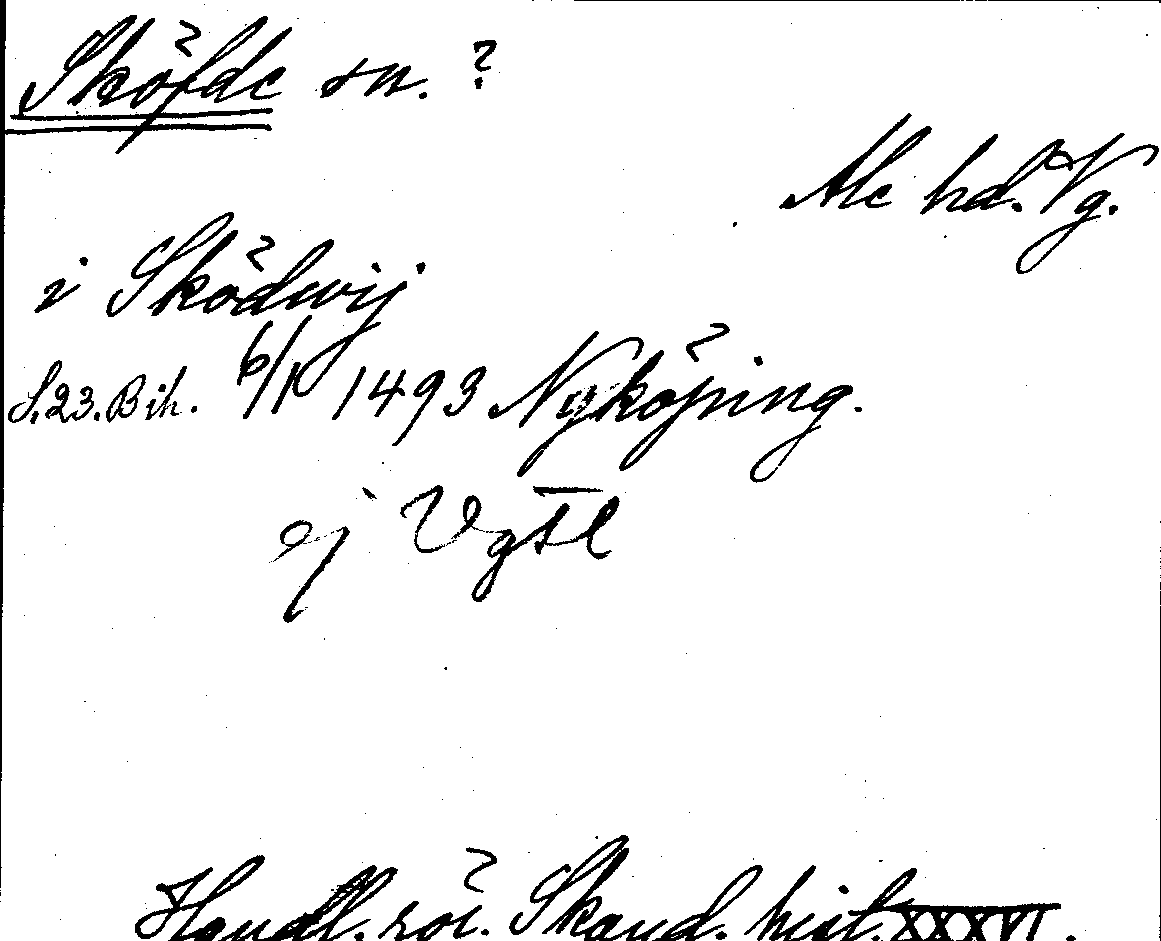 Sköfde sn. ?
Ale hd. Vg.
i Sködwij
S.23. Bih. 6/1 1493 Nyköping.
ej VgSL
Handl. rör. Skand. hist. XXXVI.